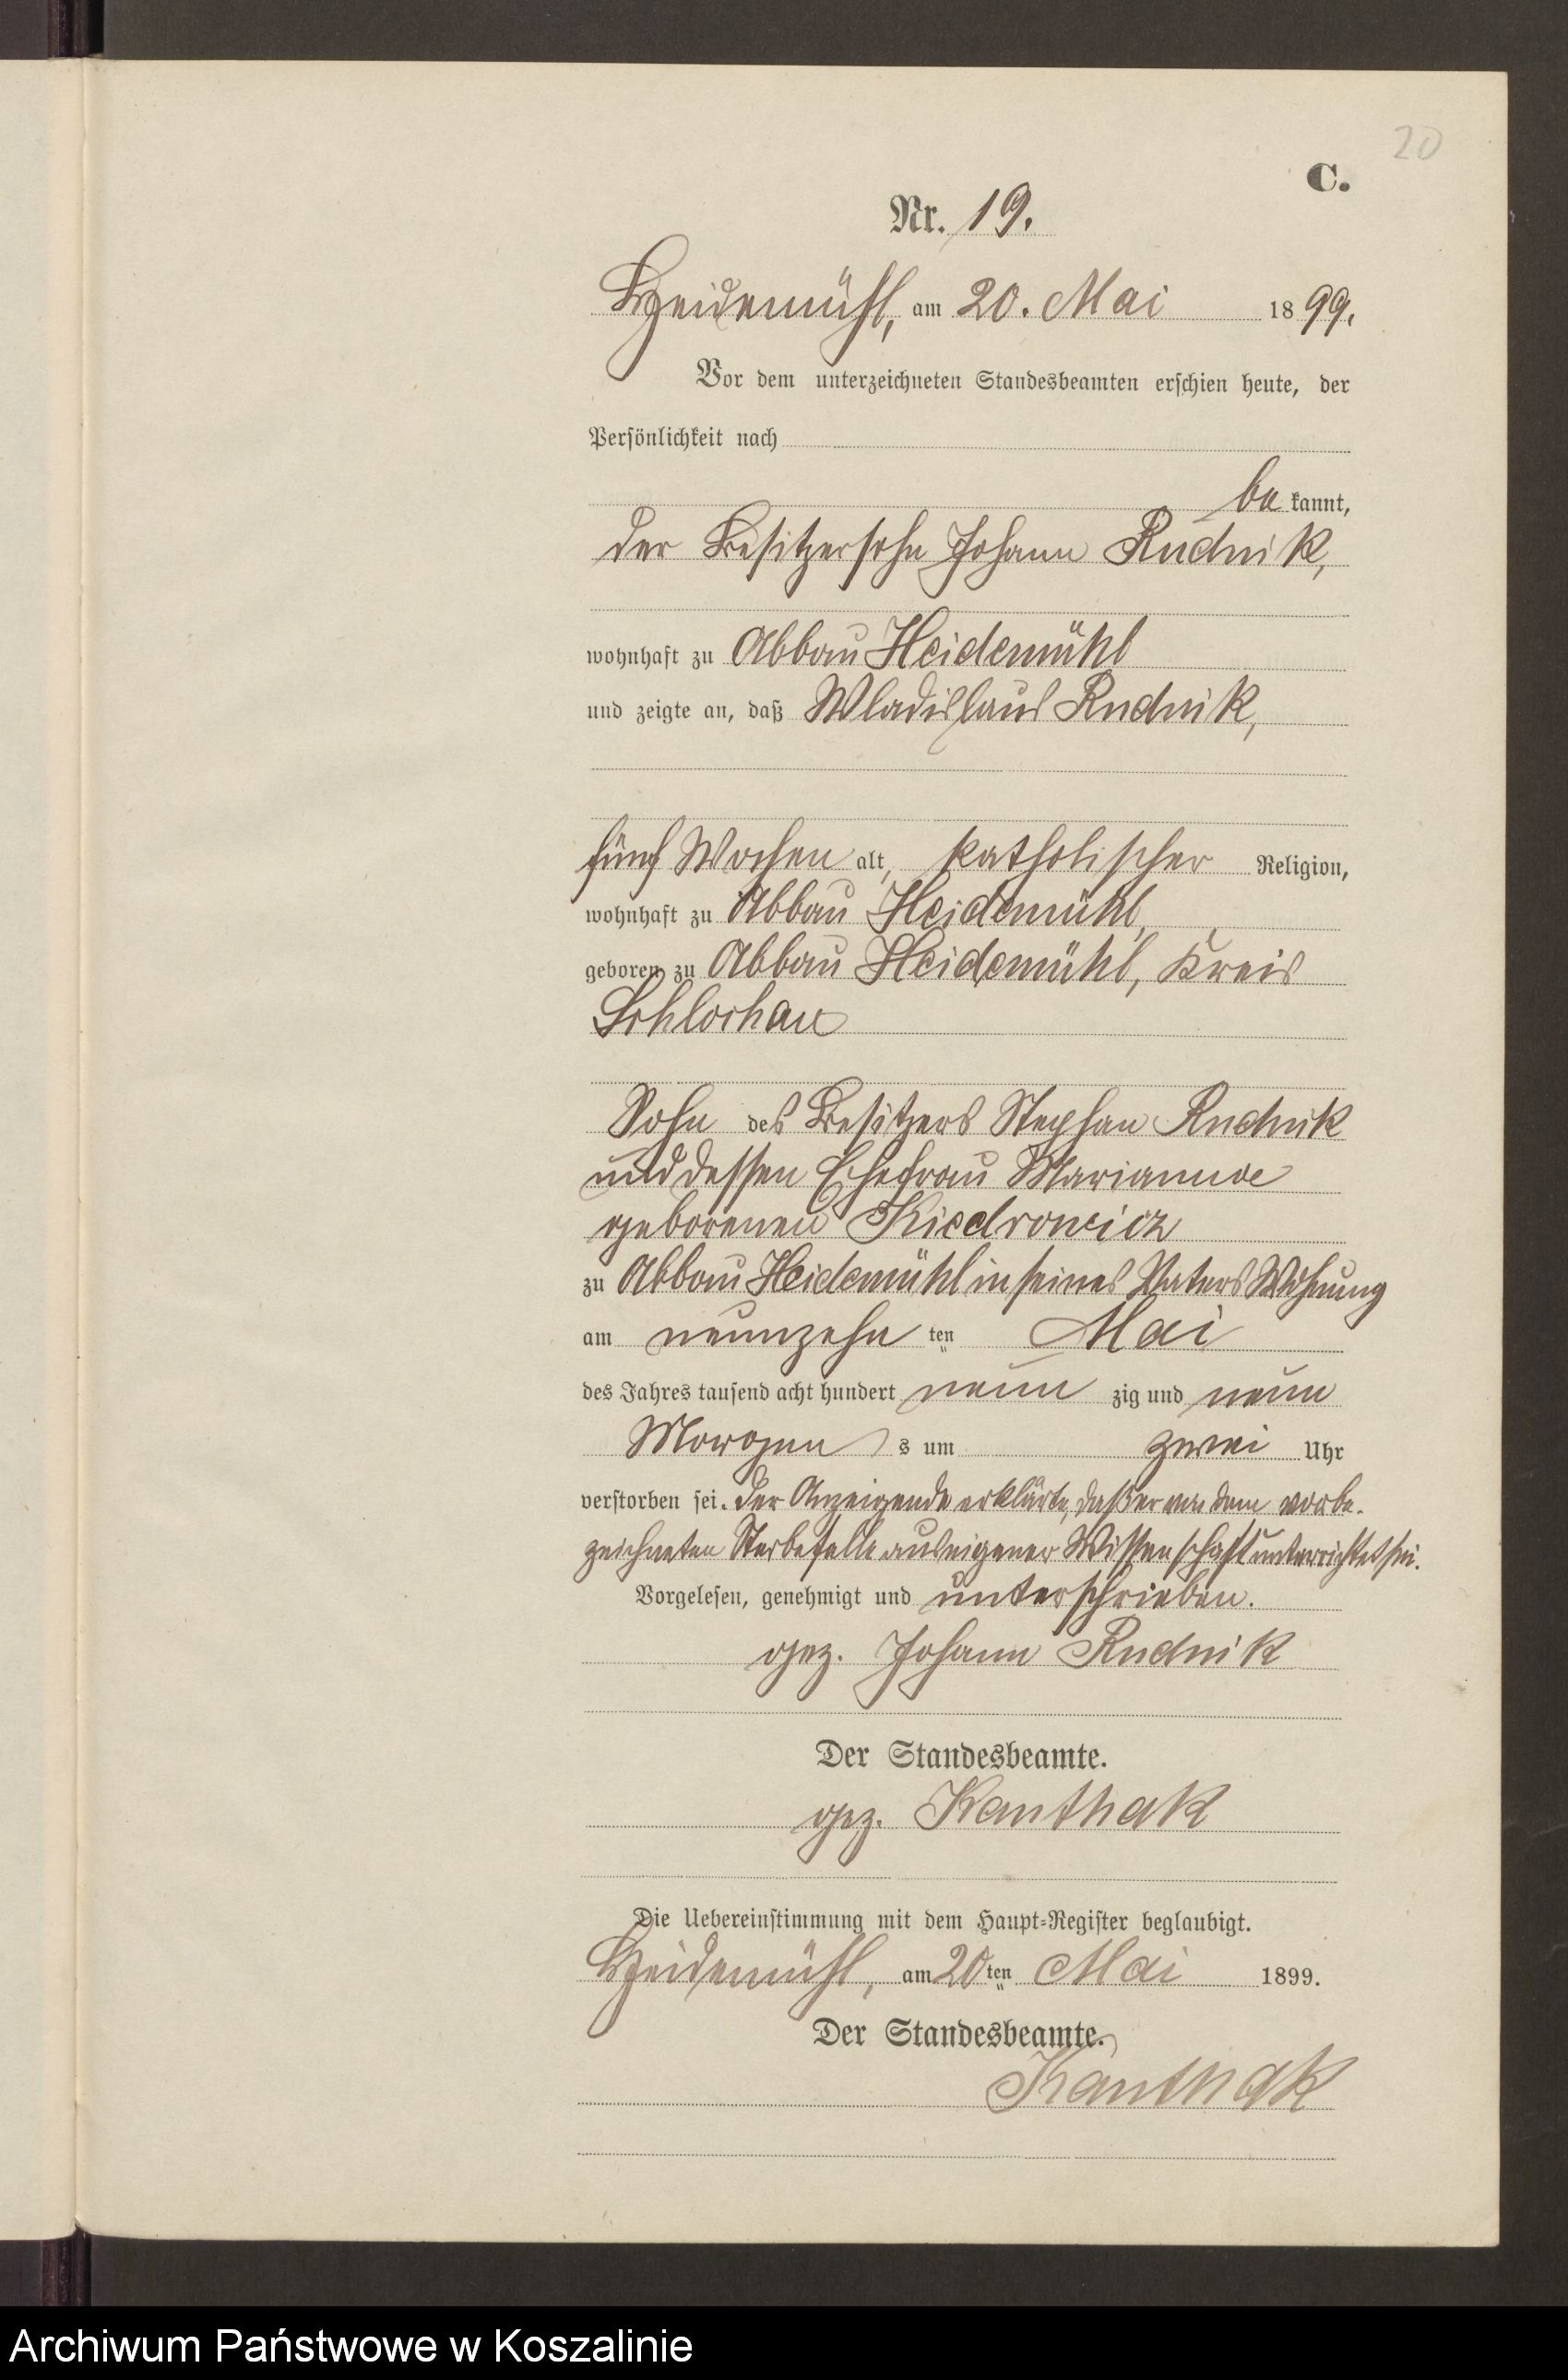 20
C.
Nr. 19.
Heidemühl, am 20. Mai 1899.
Vor dem unterzeichneten Standesbeamten erschien heute, der
Persönlichkeit nach
be kannt,
der Besitzersohn Johann Rudnik,
wohnhaft zu Abbau Heidemühl
und zeigte an, daß Wladislaus Rudnik,
fünf Wochen alt, katholischer Religion,
wohnhaft zu Abbau Heidemühl,
geboren zu Abbau Heidemühl, Kreis
Schlochau
Sohn des Besitzers Stephan Rudnik
und dessen Ehefrau Marianne
geborenen Kiedrowicz
zu Abbau Heidemühl in seines Vaters Wohnung
am neunzehn ten Mai
des Jahres tausend acht hundert neun zig und neun
Morgen s um zwei Uhr
verstorben sei. Der Anzeigende erklärte, daß er von dem vorbe-
zeichneten Sterbefalle aus eigener Wissenschaft unterrichtet sei.
Vorgelesen, genehmigt und unterschrieben.
gez. Johann Rudnik
Der Standesbeamte.
gez. Kanthak
Die Uebereinstimmung mit dem Haupt-Register beglaubigt.
Heidemühl, am 20ten Mai 1899.
Der Standesbeamte.
Kanthak
Archiwum Państwowe w Koszalinie